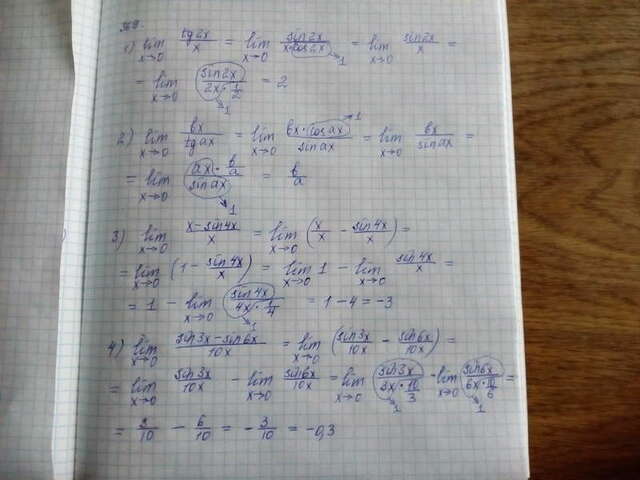 369.
1) lim x→0 tg2x/x = lim x→0 sin2x/(x·cos2x)→1 = lim x→0 sin2x/x =
= lim x→0 sin2x/(2x·1/2)→1 = 2
2) lim x→0 bx/tgax = lim x→0 (bx·cosax→1)/sinax = lim x→0 bx/sinax =
= lim x→0 (ax·b/a)/sinax→1 = b/a
3) lim x→0 (x-sin4x)/x = lim x→0 (x/x - sin4x/x) =
= lim x→0 (1 - sin4x/x) = lim x→0 1 - lim x→0 sin4x/x =
= 1 - lim x→0 sin4x/(4x·1/4)→1 = 1-4 = -3
4) lim x→0 (sin3x-sin6x)/10x = lim x→0 (sin3x/10x - sin6x/10x) =
= lim x→0 sin3x/10x - lim x→0 sin6x/10x = lim x→0 sin3x/(3x·10/3)→1 - lim x→0 sin6x/(6x·10/6)→1 =
= 3/10 - 6/10 = -3/10 = -0,3